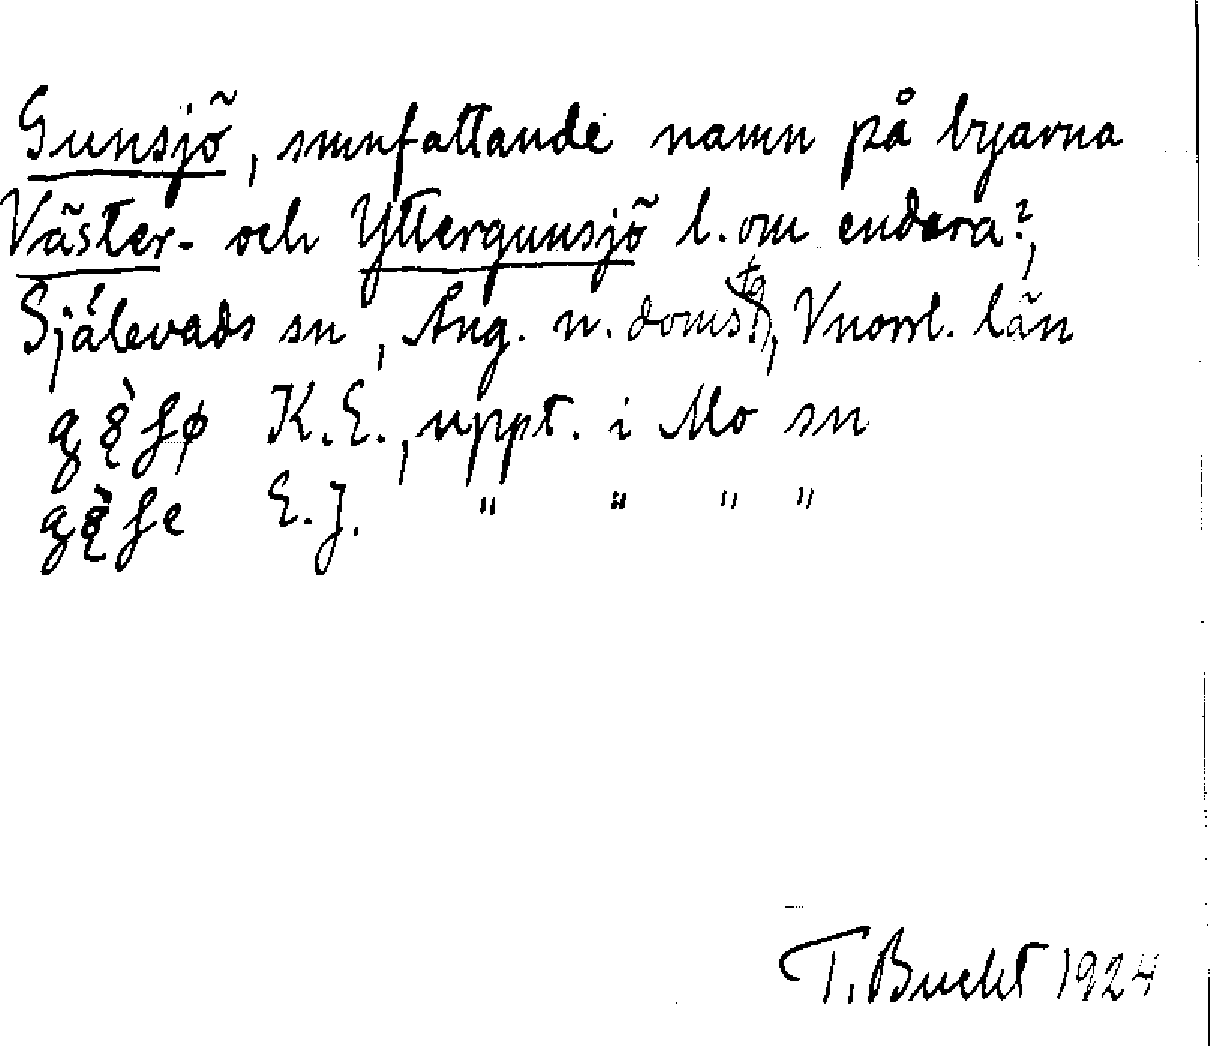 Gunsjö, smnfattande namn på byarna
Väster- och Yttergunsjö l. om endera?,
Själevads sn, Ång. n. doms, Vnorrl. län
K.E., uppt. i Mo sn
E.J. " " " "
T. Bucht 1924